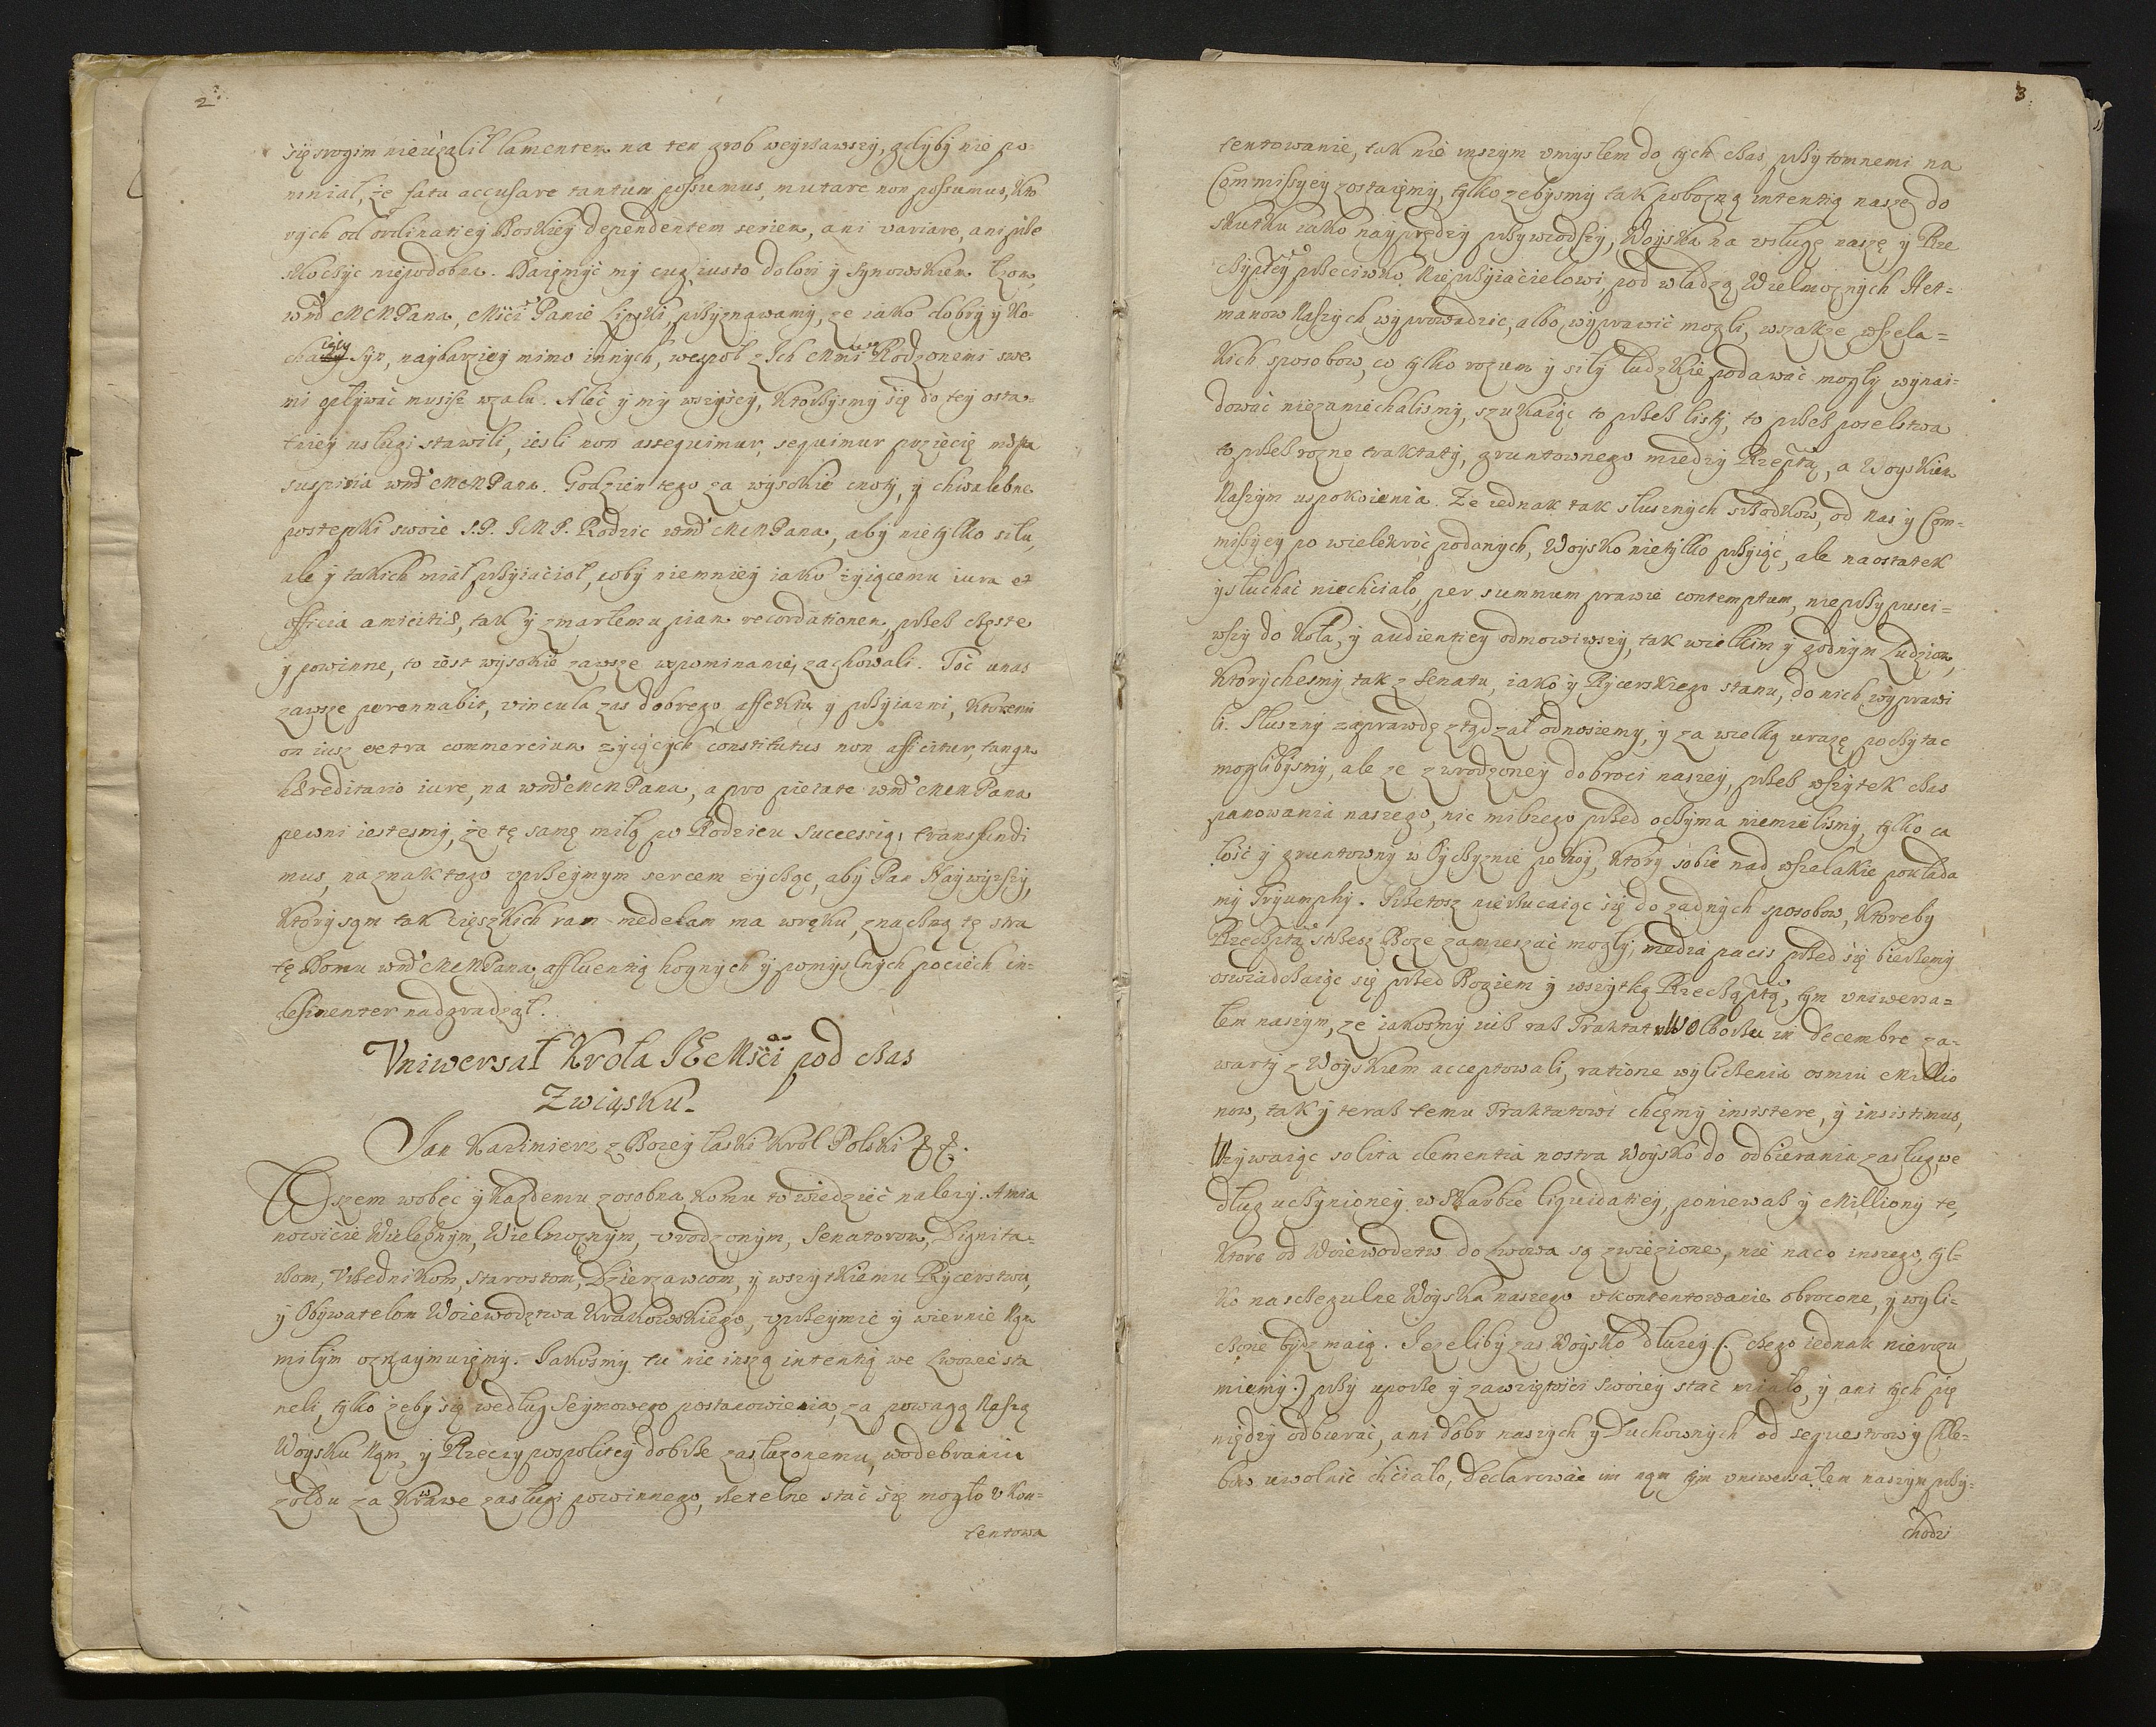 2.
się srogim nieużalił lamentem na ten grob weyrzawszy, gdyby nie po-
mniał, że fata accusare tantum possumus, mutare non possumus, Kto
rych od ordinatiey Boskiey dependentem seriem, ani variare, ani prze
skoczyc niepodobna. Daiąmyć my cug iusto dolori y synowskim łzom,
wmć MCMPana, Mści Panie Lipski, przyznawamy, ze iako dobry y Ko-
chaiący Syn, naybarziey mimo innych, wespoł z Ich Mmi Rodzonemi swe
mi opływać musisz wzalu. Aleć y my wszyscy, ktorzysmy się do tey osta-
tniey usługi stawili, iesli non assequimur, sequimur przecię
suspiria wmć MCMPana. Godzien tego za wysokie cnoty, y chwalebne
postepki swoie S.P. JMP. Rodzic wmć MCMPana, aby nietylko siła,
ale y takich miał przyiacioł, coby niemniey iako żyiącemu iura et
officia amicitiæ, tak y zmarłemu piam recordationem, przez częste
y powinne, to iest wysokie zawsze wspominanie, zachowali. Toć unas
zawsze perennabit, vincula zas dobrego affektu y przyiazni, Ktoremi
on iusz extra commercium zyiących constitutus non afficitur, tanqm
hæreditario iure, na wmć MCMPana, a pro pietate wmć MCMPana
pewni iestesmy, że tę samę miłą po Rodzicu successią, transfundi
mus, na znak tego uprzeymym sercem życząc, aby Pan Naywyższy,
Ktory sąm tak cięszkich ran medelam ma wręku, znaczną tę stra
tę Domu wmć MCMPana, affluentią hoynych y pomyslnych pociech in-
desinenter nadgradzał.
Vniwersał Krola JKMści pod czas
Związku.
Jan Kazimierz z Bozey łaski Krol Polski &c.
Wszem wobec y Kazdemu zosobna, Komu to wiedzieć nalezy. Amia
nowicie Wielebnym, Wielmoznym, Vrodzonym, Senatorom, Dignita-
rzom, Vrzednikom, Starostom, Dzierzawcom, y wszytkiemu Rycerstwu,
y Obywatelom Woiewodztwa Krakowskiego, uprzeymie y wiernie Nąm
miłym oznaymuięmy. Jakosmy tu nie inszą intentią we Lwowie sta
neli, tylko żeby się według Seymowego postanowienia, za powagą Naszą
Woysku Nąm, y Rzeczypospolitey dobrze zasłuzonemu, wodebraniu
zołdu za Krwawe zasługi powinnego, rzetelne stać się mogło ukon-
tentowa
3.
tentowanie, tak nie inszym umysłem do tych czas, przytomnemi na
Commissyey zostaięmy, tylko zebysmy tak pobozną intentią naszę do
skutku iako nayprędzy przywiodszy, Woyska na usługę naszę y Rze
czyptey przeciwko Nieprzyiacielowi, pod władzą Wielmoznych Het-
manow Naszych wyprowadzic, albo wyprawić mogli, wszakze wszela-
Kich sposobow, co tylko rozum y siły ludzkie podawać mogły wynai-
dować niezaniechalismy, szukaiąc to przez listy, to przez poselstwa
to przez rozne traktaty, gruntownego miedzy Rzeptą, a Woyskiem
Naszym uspokoienia. Ze iednak tak słusznych srzodkow, od nas y Com-
missyey po wielekroć podanych, Woysko nietylko przyiąć, ale naostatek
y słuchać niechciało, per summum prawie contemptum, nieprzypusci-
wszy do Koła, y audientiey odmowiwszy, tak wielkim y godnym Ludziom,
Ktorychesmy tak z Senatu, iako y Rycerskiego stanu, do nich wyprawi
li. Słuszny zaprawdę ztąd zal odnosiemy, y za wielką urazę poczytac
moglibysmy, ale ze zwrodzoney dobroci naszey, przez wszytek czas
panowania naszego, nic milszego przed oczyma niemielismy, tylko ca
łość y gruntowny w Oyczyznie pokoy, ktory sobie nad wszelakie pokłada
my Tryumphy. Przetosz nierzucaiąc się do zadnych sposobow, ktoreby
Rzeczptą strzesz Boze zamieszać mogły; media pacis przed się bierzemy
oswiadczaiąc się przed Bogiem y wszytką Rzecząptą, tym uniwersa-
łem naszym, ze iakosmy iuż raz Traktat w Wolborzu in Decembre za-
warty z Woyskiem acceptowali, ratione wyliczenia osmiu Millio
now, tak y teraz temu Traktatowi chcęmy insistere, y insistimus,
Wzywaiąc solita clementia nostra Woysko do odbierania zasług, we
dług uczynioney w Skarbie liquidatiey, poniewaz y Milliony te,
ktore od Woiewodztw do Lwowa są zwiezione, nie naco inszego, tyl-
ko na szczegulne Woyska naszego ukontentowanie obrocone, y wyli-
czone bydz maią. Jezeliby zas Woysko dłuzey (: czego iednak nierozu
miemy:) przy uporze y zawziętości swoiey stać miało, y ani tych pie
niędzy odbierać, ani dobr naszych y Duchownych od sequestrow y chle-
bow uwolnić chciało, Declarowac im nąm tym uniwersałem naszym przy-
chodzi